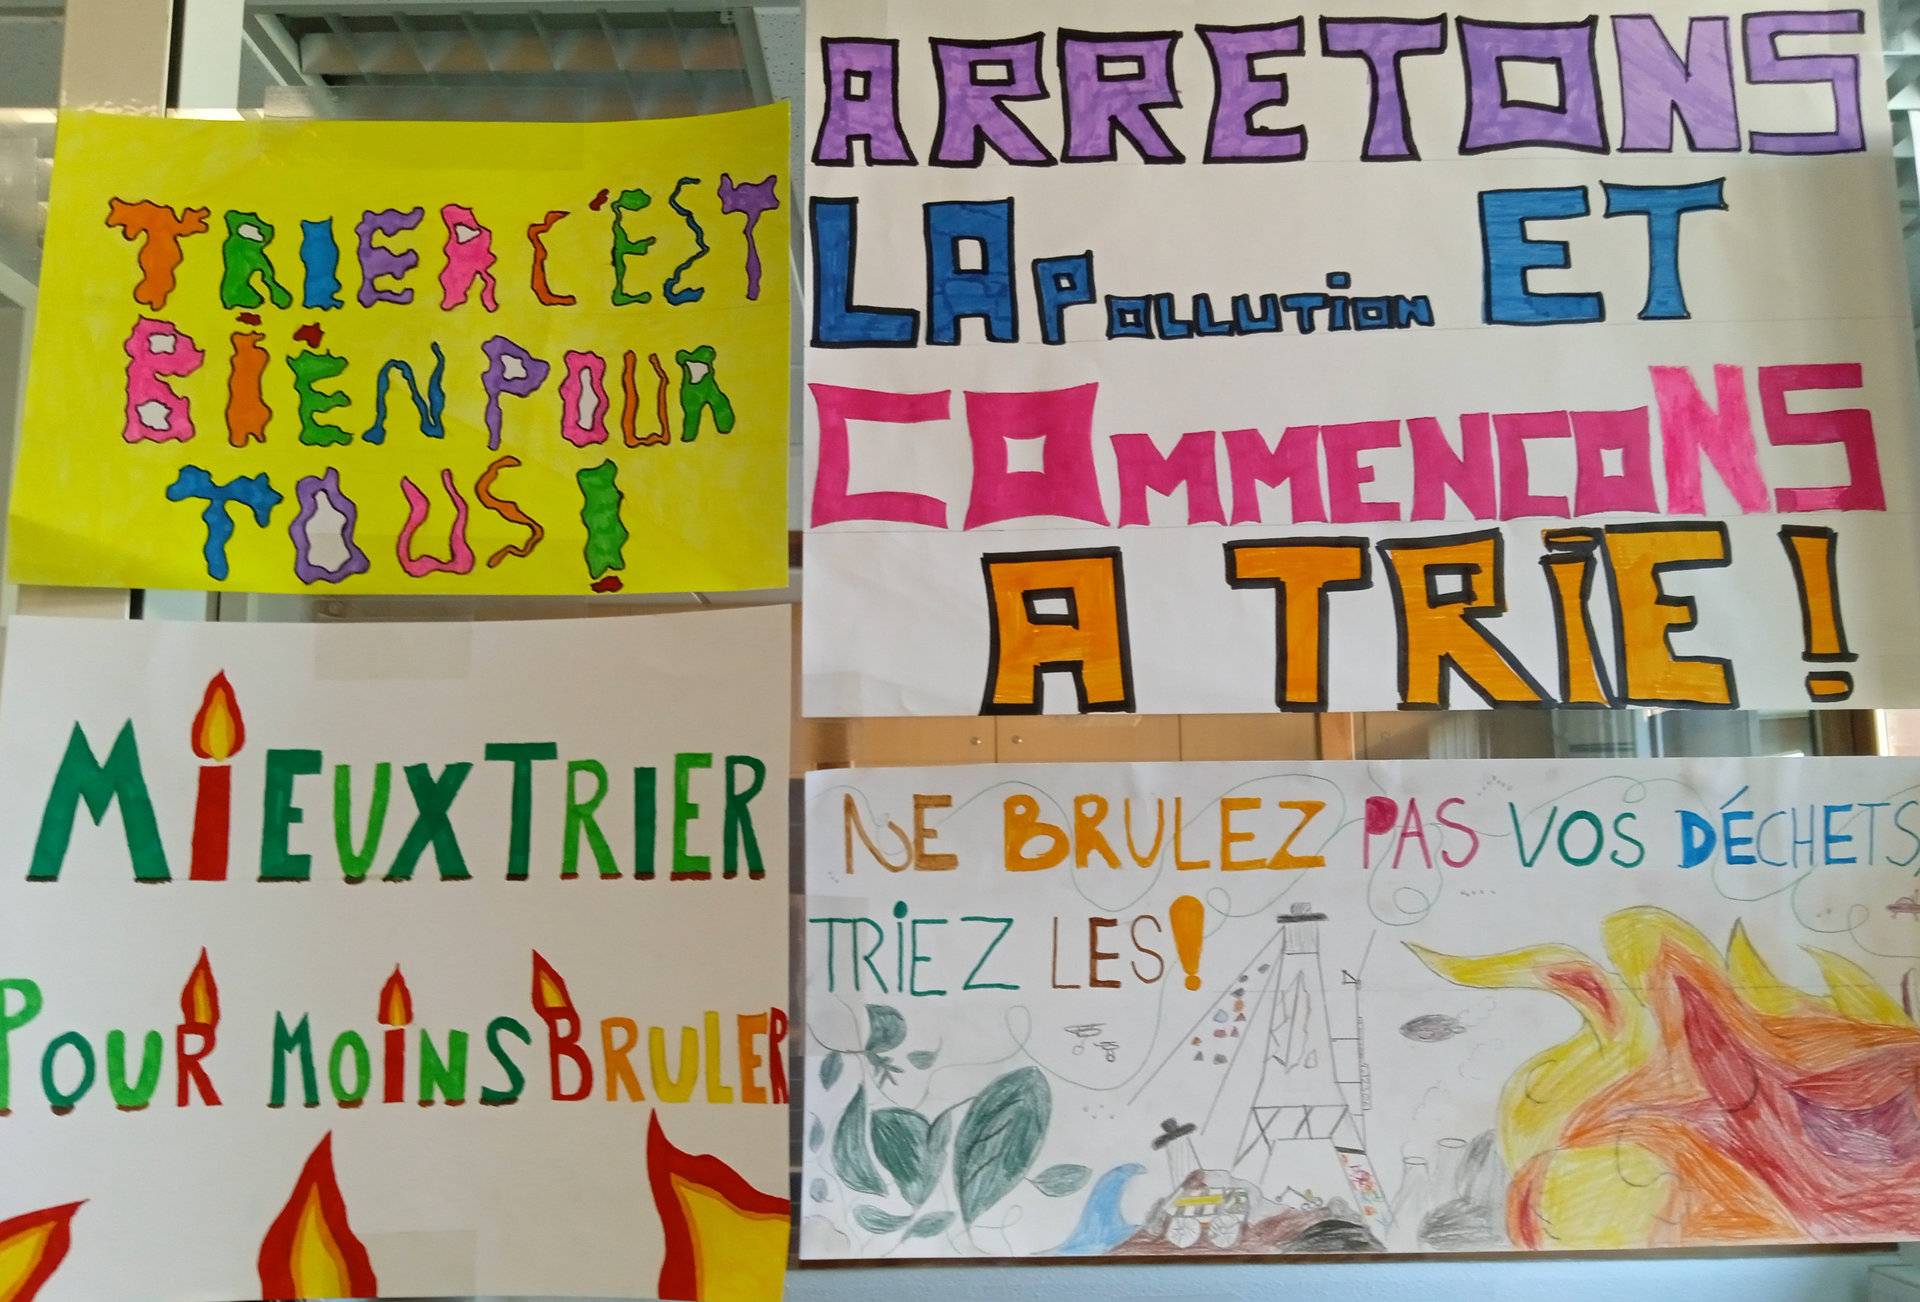 TRIER C'EST
BIEN POUR
TOUS!
ARRETONS
LA POLLUTION ET
COMMENCONS
A TRIE!
MIEUX TRIER
POUR MOINS BRULER
NE BRULEZ PAS VOS DÉCHETS,
TRIEZ LES!